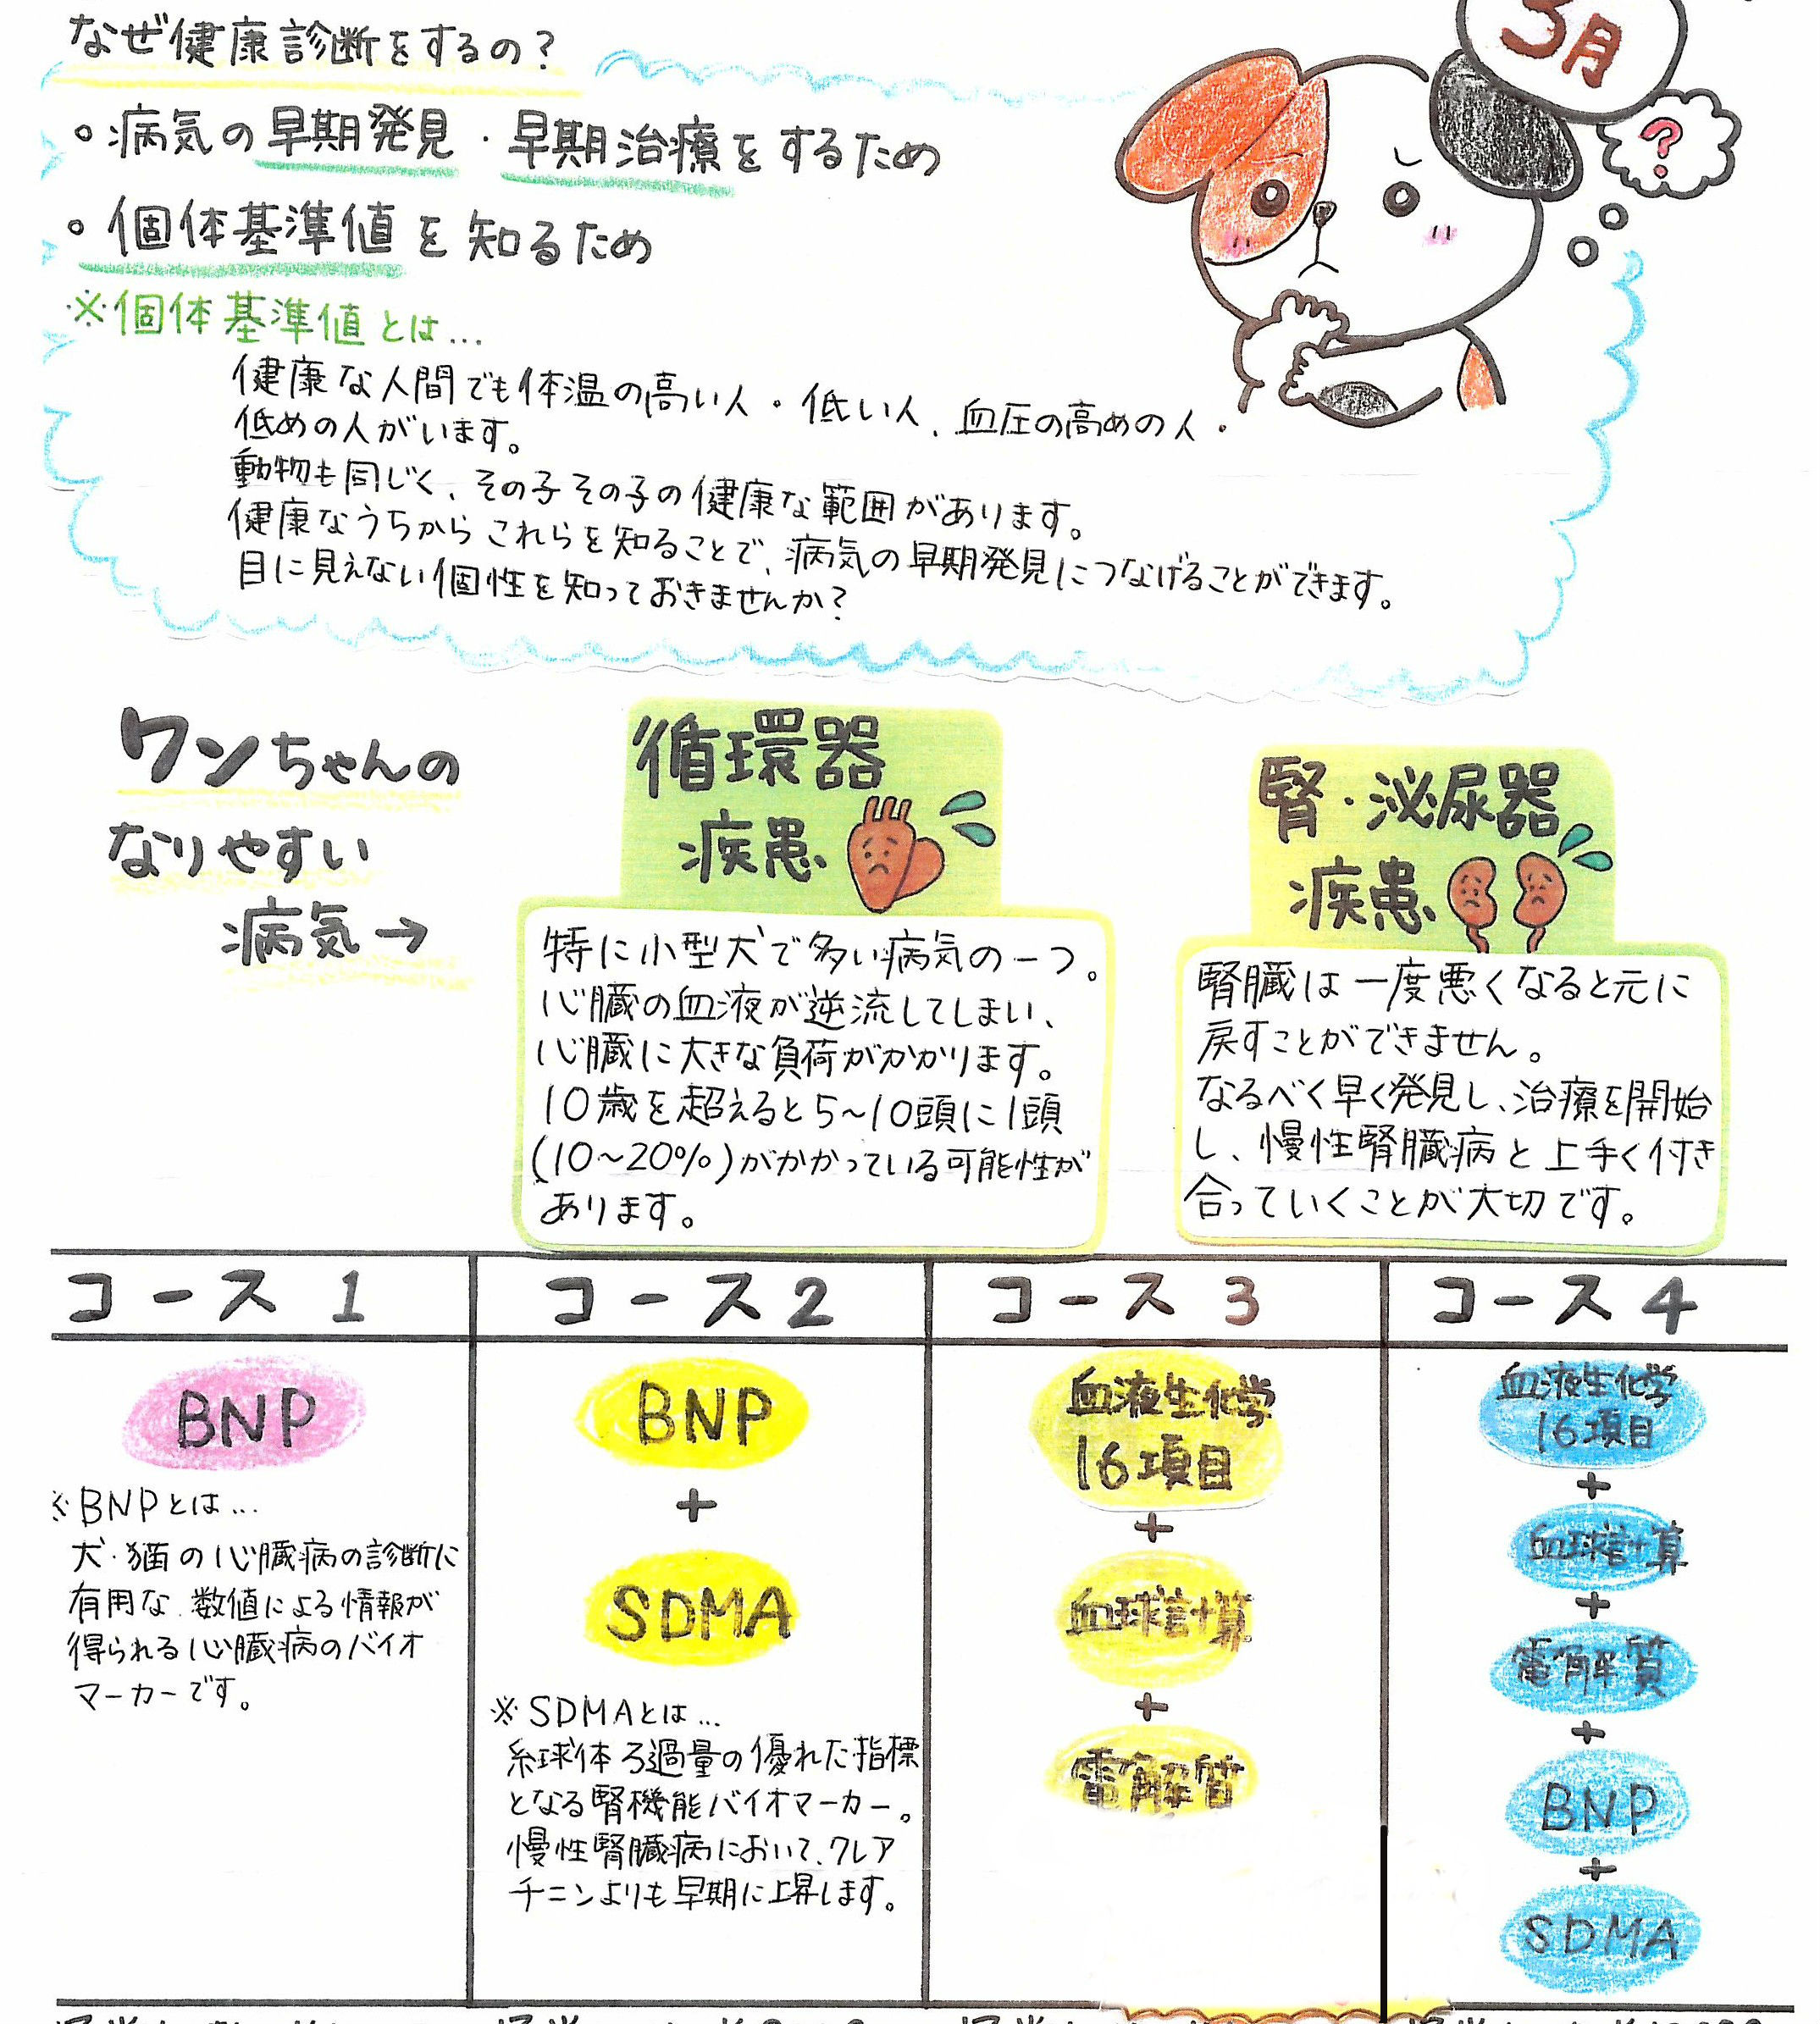 3月
?
なぜ健康診断をするの？
○病気の早期発見・早期治療をするため
○個体基準値を知るため
※個体基準値とは…
健康な人間でも体温の高い人・低い人、血圧の高めの人・
低めの人がいます。
動物も同じく、その子その子の健康な範囲があります。
健康なうちからこれらを知ることで、病気の早期発見につなげることができます。
目に見えない個性を知っておきませんか？
ワンちゃんの
なりやすい
病気→
循環器
疾患
特に小型犬で多い病気の一つ。
心臓の血液が逆流してしまい、
心臓に大きな負荷がかかります。
10歳を超えると5〜10頭に1頭
(10〜20%)がかかっている可能性が
あります。
腎・泌尿器
疾患
腎臓は一度悪くなると元に
戻すことができません。
なるべく早く発見し、治療を開始
し、慢性腎臓病と上手く付き
合っていくことが大切です。
コース1
BNP
※BNPとは…
犬・猫の心臓病の診断に
有用な、数値による情報が
得られる心臓病のバイオ
マーカーです。
コース2
BNP
+
SDMA
※SDMAとは…
糸球体ろ過量の優れた指標
となる腎機能バイオマーカー。
慢性腎臓病において、クレア
チニンよりも早期に上昇します。
コース3
血液生化学
16項目
+
血球計算
+
電解質
コース4
血液生化学
16項目
+
血球計算
+
電解質
+
BNP
+
SDMA